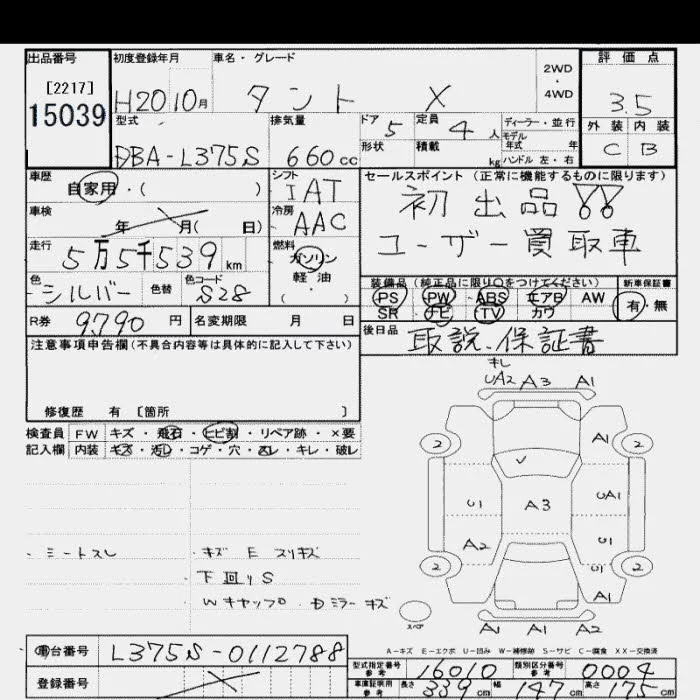 出品番号 初度登録年月 車名・グレード 2WD・4WD 評価点
[2217]
15039
H20 10月 タント X 3.5
型式 排気量 ドア 5 定員 4人 ディーラー・並行 外装 内装
モデル年式 年
DBA-L375S 660cc 形状 積載 kg ハンドル 左・右 C B
車歴 シフト セールスポイント (正常に機能するものに限ります)
自家用・( ) IAT 初出品!!
車検 冷房
年 月( 日) AAC ユーザー買取車
走行 燃料
5万5千539km ガソリン
色 色替 色コード 軽・油 装備品 (純正品に限り○をつけてください) 新車保証書
シルバー S28 ・( ) PS PW ABS エアB AW 有・無
SR ナビ TV カワ
R券 9790円 名変期限 月 日 後日品 取説、保証書
注意事項申告欄(不具合内容等は具体的に記入して下さい)
修復歴 有 [箇所 ]
検査員 FW キズ・飛石・ヒビ割・リペア跡・×要
記入欄 内装 キズ・汚レ・コゲ・穴・スレ・キレ・破レ
キレ
UA2 A3 A1
2 A1 2
U1 A3 UA1
A2 U1
U1
2 A1 2
A2
スペア A1 A1 A2
・ミートスレ
・キズ E スリキズ
下回りS
Wキャップ
ミラーキズ
A-キズ E-エクボ U-凹み W-補修跡 S-サビ C-腐食 XX-交換済
車台番号 L375S-0112788
登録番号
型式指定番号 参考 16010 類別区分番号 参考 0004
車庫証明用 参考 長さ 339cm 幅 147cm 高さ 175cm